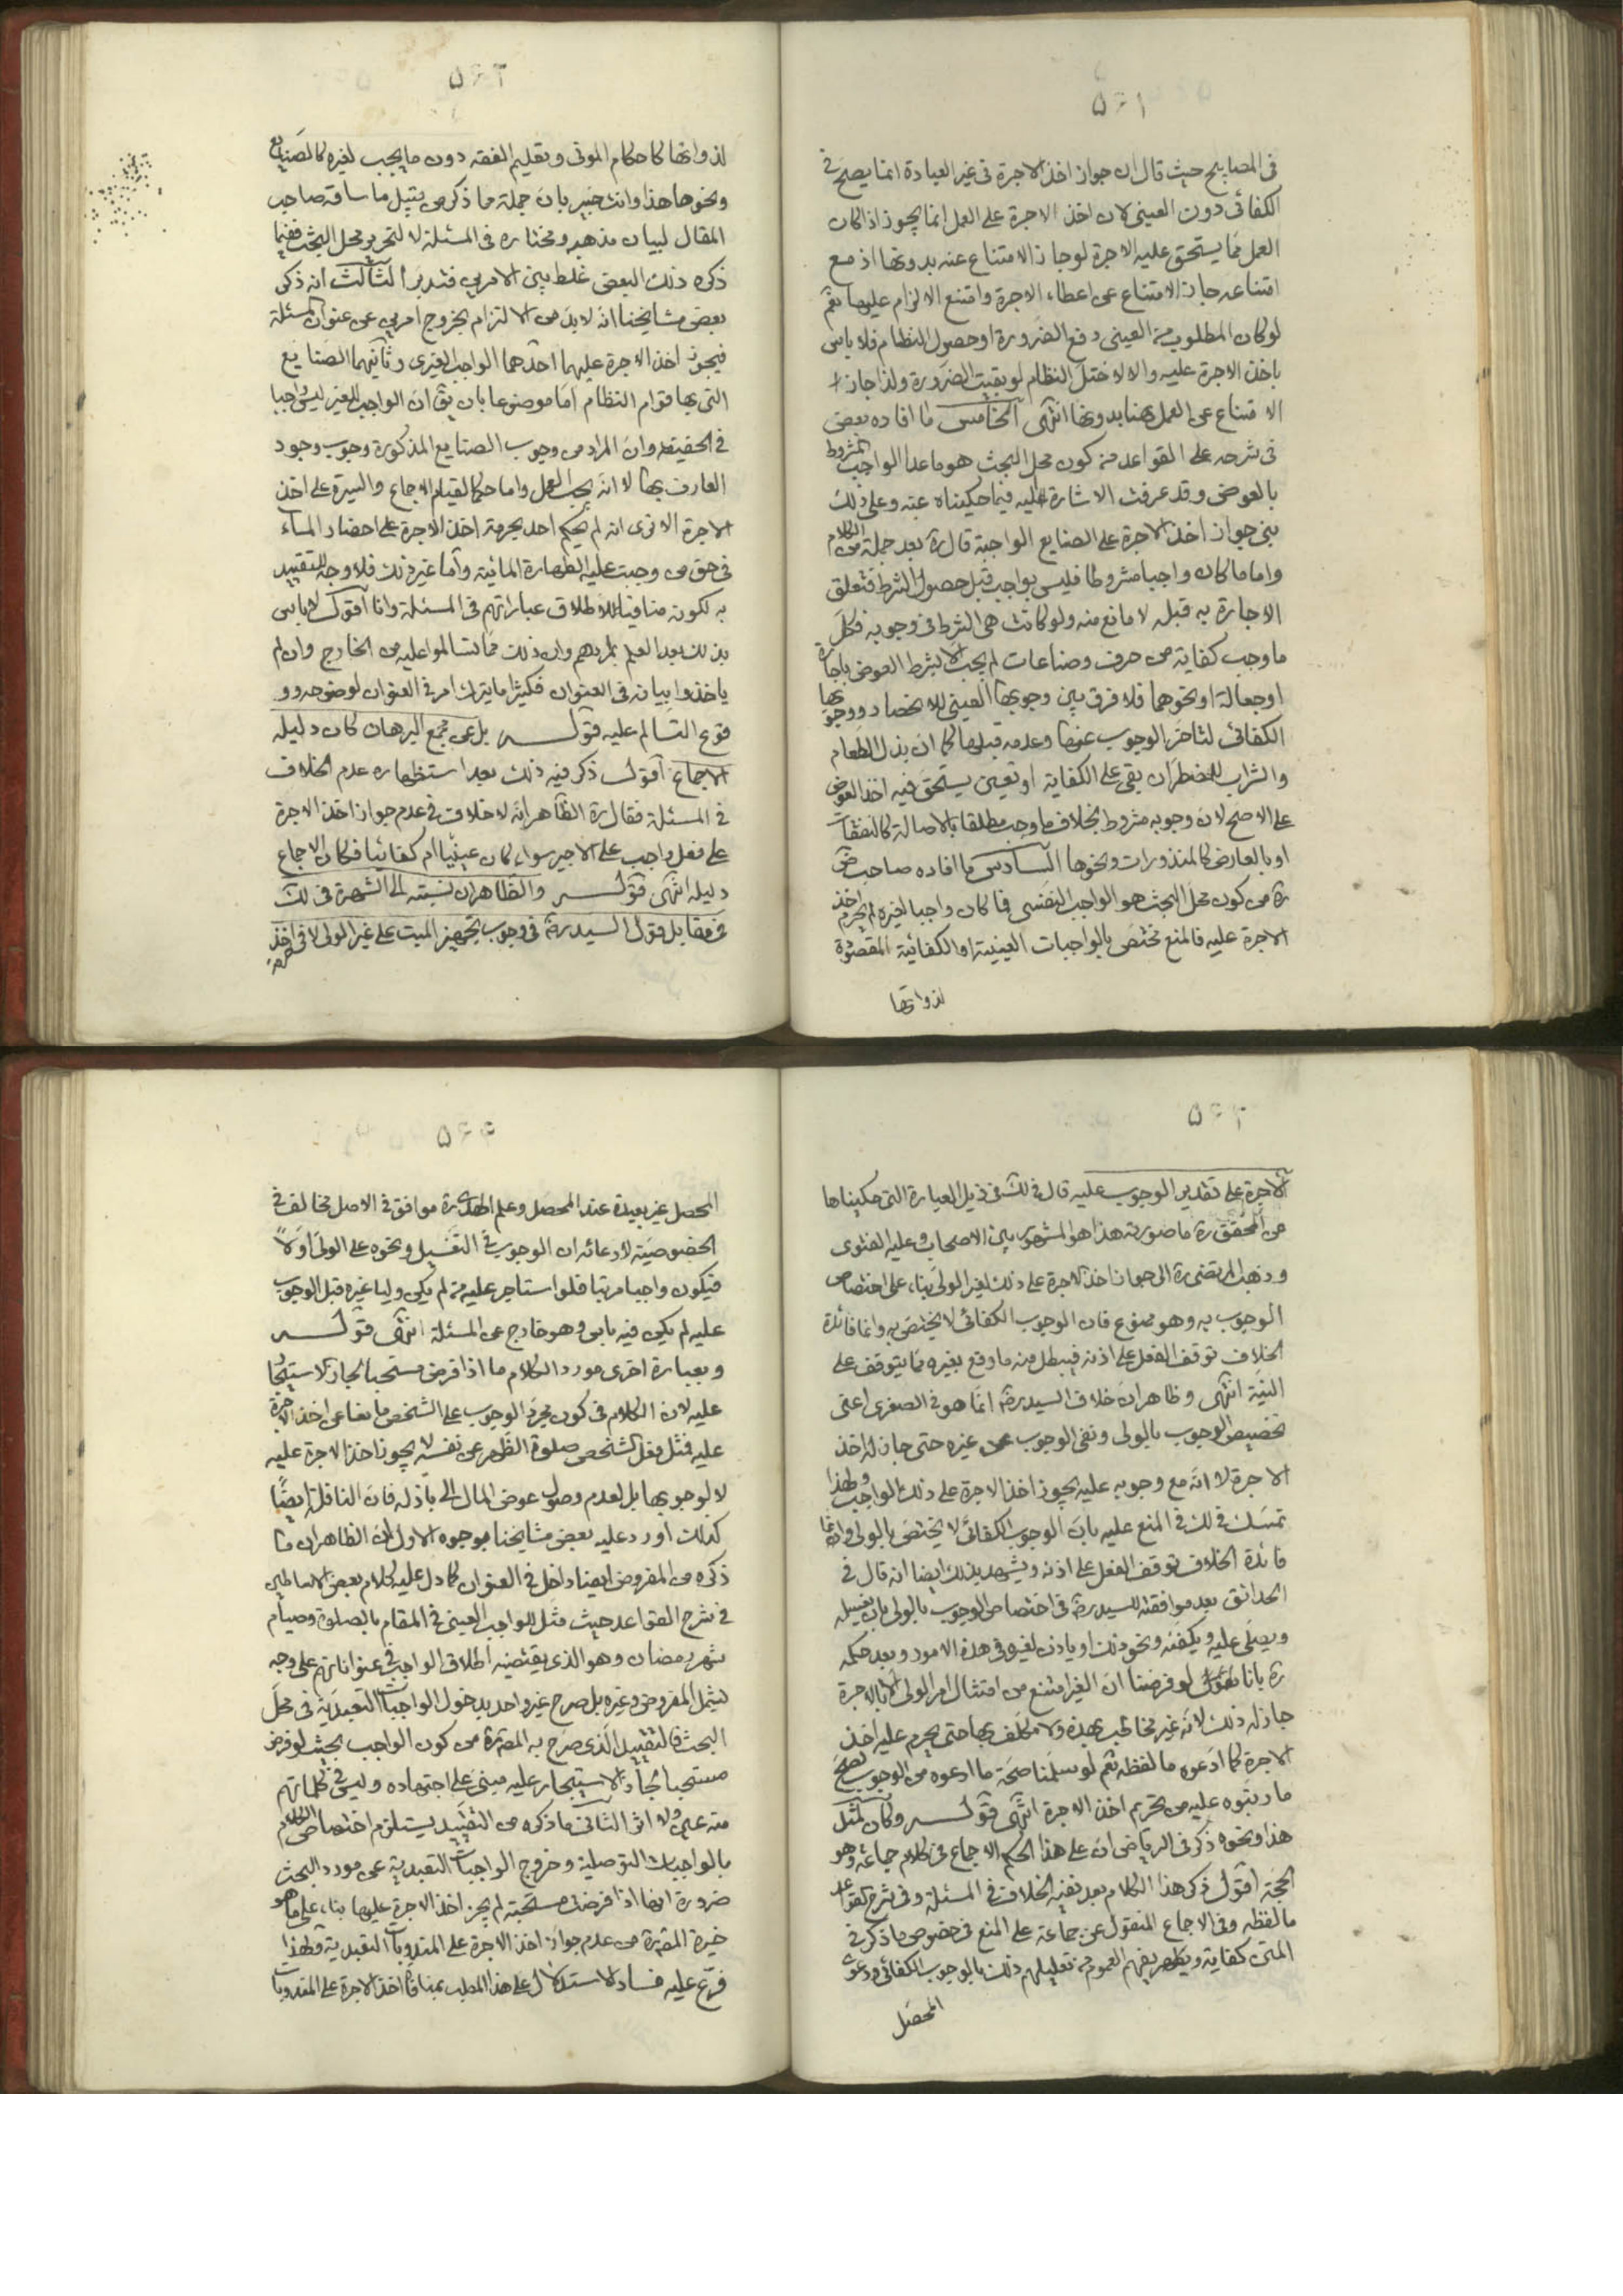 ۵۶۱
فى المصابيح حيث قال ان جواز اخذ الاجرة فى غير العبادة انما يصح فى
الكفائى دون العينى لان اخذ الاجرة على العمل انما يجوز اذا كان
العمل مما يستحق عليه الاجرة لو جاز الامتناع عنه بدونها اذ مع
امتناعه جاز الامتناع عن اعطاء الاجرة وامتنع الالزام عليها نعم
لو كان المطلوب من العينى دفع الضرورة او حصول النظام فلا باس
باخذ الاجرة عليه والا لاختل النظام لو بقيت الضرورة ولذا جاز
الامتناع عن العمل هنا بدونها انتهى الخامس ما افاده بعض
فى شرحه على القواعد من كون محل البحث هو ما عدا الواجب المشروط
بالعوض وقد عرفت الاشارة اليه فيما حكيناه عنه وعلى ذلك
بنى جواز اخذ الاجرة على الصنايع الواجبة قال ره بعد جملة من الكلام
واما ما كان واجبا مشروطا فليس بواجب قبل حصول الشرط فتعلق
الاجارة به قبله لا مانع منه ولو كانت هى الشرط فى وجوبه فكل
ما وجب كفاية من حرف وصناعات لم يجب الا بشرط العوض باجارة
او جعالة او نحوهما فلا فرق بين وجوبها العينى للانحصار ووجوبها
الكفائى لتاخر الوجوب عنها وعدمه قبلها كما ان بذل الطعام
والشراب للمضطر ان بقى على الكفاية او تعين يستحق فيه اخذ العوض
على الاصح لان وجوبه مشروط بخلاف ما وجب مطلقا بالاصالة كالنفقات
او بالعارض كالمنذورات ونحوها السادس ما افاده صاحب ض
ره من كون محل البحث هو الواجب النفسى فما كان واجبا لغيره لم يحرم اخذ
الاجرة عليه فالمنع مختص بالواجبات العينية او الكفائية المقصودة
لذواتها
۵۶۲
لذواتها كاحكام الموتى وتعليم الفقه دون ما يجب لغيره كالصنايع
ونحوها هذا وانت خبير بان جملة مما ذكر من قبيل ما ساقه صاحب
المقال لبيان مذهبه ومختاره فى المسئلة لا لتحرير محل البحث ففيما
ذكره ذلك البعض غلط بين الامرين فتدبر الثالث انه ذكر
بعض مشايخنا انه لا بد من الالتزام بخروج امرين عن عنوان المسئلة
فيجوز اخذ الاجرة عليهما احدهما الواجب الغيرى وثانيهما الصنايع
التى بها قوام النظام اما موضوعا بان يق ان الواجب للغير ليس واجبا
فى الحقيقة وان المراد من وجوب الصنايع المذكورة وجوب وجود
العارف بها لا انه يجب العمل واما حكما لقيام الاجماع والسيرة على اخذ
الاجرة الا ترى انه لم يحكم احد بحرمة اخذ الاجرة على احضار الماء
فى حق من وجبت عليه الطهارة المائية واما غير ذلك فلا وجه للتقييد
به لكونه منافيا للاطلاق عباراتهم فى المسئلة وانا اقول لا باس
بذلك بعد العلم بمرادهم وان ذلك مما تسالموا عليه من الخارج وان لم
ياخذوا بيانه فى العنوان فكثيرا ما يترك امر فى العنوان لوضوحه وو
قوع التسالم عليه قوله بل عن مجمع البرهان كان دليله
الاجماع اقول ذكر فيه ذلك بعد استظهاره عدم الخلاف
فى المسئلة فقال ره الظاهر انه لا خلاف فى عدم جواز اخذ الاجرة
على فعل واجب على الاجير سواء كان عينيا ام كفائيا فكان الاجماع
دليله انتهى قوله والظاهر ان نسبته الى الشهرة فى لك
فى مقابل قول السيد ره فى وجوب تجهيز الميت على غير الولى لا فى اخذ
۵۶۳
الاجرة على تقدير الوجوب عليه قال فى لك فى ذيل العبارة التى حكيناها
من المحقق ره ما صورته هذا هو المشهور بين الاصحاب وعليه الفتوى
وذهب المرتضى ره الى جواز اخذ الاجرة على ذلك لغير الولى بناء على اختصاص
الوجوب به وهو ممنوع فان الوجوب الكفائى لا يختص به وانما فائدة
الخلاف توقف الفعل على اذنه فيبطل منه ما وقع بغيره مما يتوقف على
النية انتهى وظاهر ان خلاف السيد ره انما هو فى الصغرى اعنى
تخصيص الوجوب بالولى ونفى الوجوب عن غيره حتى جاز له اخذ
الاجرة لا انه مع وجوبه عليه يجوز اخذ الاجرة على ذلك الواجب ولهذا
تمسك فى لك فى المنع عليه بان الوجوب الكفائى لا يختص بالولى وانما
فائدة الخلاف توقف الفعل على اذنه ويشهد بذلك ايضا انه قال فى
الحدائق بعد موافقته للسيد ره فى اختصاص الوجوب بالولى بان يغسله
ويصلى عليه ويكفنه ونحو ذلك او ياذن لغيره فى هذه الامور وبعد حكمه
ره بانا نقول لو فرضنا ان الغير امتنع من امتثال امر الولى الا بالاجرة
جاز له ذلك لانه غير مخاطب بهذه ولا مكلف بها حتى يحرم عليه اخذ
الاجرة كما ادعوه ما لفظه نعم لو سلمنا صحة ما ادعوه من الوجوب لصح
ما رتبوه عليه من تحريم اخذ الاجرة انتهى قوله وكان لمثل
هذا ونحوه ذكر فى الرياض ان على هذا الحكم الاجماع فى كلام جماعة وهو
الحجة اقول ذكر هذا الكلام بعد نفيه الخلاف فى المسئلة وفى شرح القواعد
ما لفظه وفى الاجماع المنقول عن جماعة على المنع فى خصوص ما ذكر فى
المتن كفاية ويظهر بفهم العموم من تعليلهم ذلك بالوجوب الكفائى ودعوى
المحصل
۵۶۴
المحصل غير بعيدة عند المحصل وعلم الهدى ره موافق فى الاصل مخالف فى
الخصوصية لادعائه ان الوجوب فى التغسيل ونحوه على الولى اولا
فيكون واجبا مرتبا فلو استاجر عليه من لم يكن وليا غيره قبل الوجوب
عليه لم يكن فيه باس وهو خارج عن المسئلة انتهى قوله
وبعبارة اخرى مورد الكلام ما اذا فرض مستحبا لجاز الاستيجار
عليه لان الكلام فى كون مجرد الوجوب على الشخص مانعا عن اخذ الاجرة
عليه فمثل فعل الشخص صلوة الظهر عن نفسه لا يجوز اخذ الاجرة عليه
لا لوجوبها بل لعدم وصول عوض المال الى باذله فان النافلة ايضا
كذلك اورد عليه بعض مشايخنا بوجوه الاول ان الظاهر ان ما
ذكره من المفروض ايضا داخل فى العنوان كما دل عليه كلام بعض الاساطين
فى شرح القواعد حيث مثل للواجب العينى فى المقام بالصلوة وصيام
شهر رمضان وهو الذى يقتضيه اطلاق الواجب فى عنواناتهم على وجه
يشمل المفروض وغيره بل صرح غير واحد بدخول الواجبات التعبدية فى محل
البحث فالتقييد الذى صرح به المص ره من كون الواجب بحيث لو فرض
مستحبا لجاز الاستيجار عليه مبنى على اجتهاده وليس فى كلماتهم
منه عين ولا اثر الثانى ما ذكره من التقييد يستلزم اختصاص الكلام
بالواجبات التوصلية وخروج الواجبات التعبدية عن مورد البحث
ضرورة انها اذا فرضت مستحبة لم يجز اخذ الاجرة عليها بناء على ما هو
خيرة المص ره من عدم جواز اخذ الاجرة على المندوبات التعبدية ولهذا
فرع عليه فساد الاستدلال على هذا المطلب بمنافاة اخذ الاجرة على المندوبات